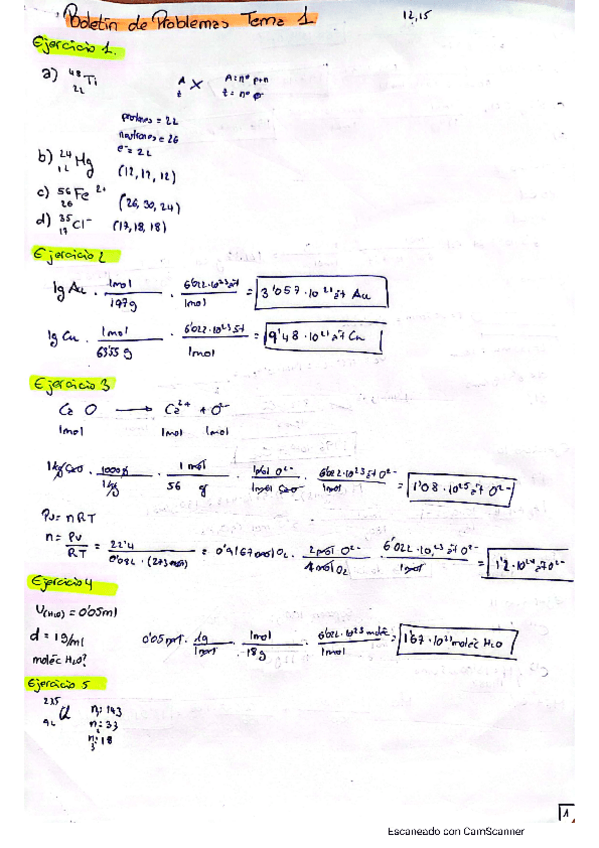 Boletín de Problemas Tema 1. 12,15
Ejercicio 1.
a) 48 22 Ti A X A = nº p+n
z z = nº p
protones = 22
neutrones = 26
e⁻ = 22
b) 24 12 Mg (12, 12, 12)
c) 56 26 Fe 2+ (26, 30, 24)
d) 35 17 Cl⁻ (17, 18, 18)
Ejercicio 2
1g Au · 1mol / 197g · 6'022·10²³ át / 1mol = 3'057·10²¹ át Au
1g Cu · 1mol / 63'55 g · 6'022·10²³ át / 1mol = 9'48·10²¹ át Cu
Ejercicio 3
Ca O → Ca²⁺ + O²⁻
1mol 1mol 1mol
1kg CaO · 1000g / 1kg · 1 mol / 56 g · 1mol O²⁻ / 1mol CaO · 6'022·10²³ át O²⁻ / 1mol = 1'08·10²⁵ át O²⁻
PV = nRT
n = PV / RT = 22'4 / 0'082 · (273) = 0'9167 mol O₂ · 2mol O²⁻ / mol O₂ · 6'022·10²³ át O²⁻ / 1mol = 1'2·10²⁴ át O²⁻
Ejercicio 4
V(H₂O) = 0'05ml
d = 1g/ml
moléc H₂O?
0'05ml · 1g / 1ml · 1mol / 18g · 6'022·10²³ moléc / 1mol = 1'67·10²¹ moléc H₂O
Ejercicio 5
235 92 U n₁: 143
n₂: 33
n₃: 18
1
Escaneado con CamScanner